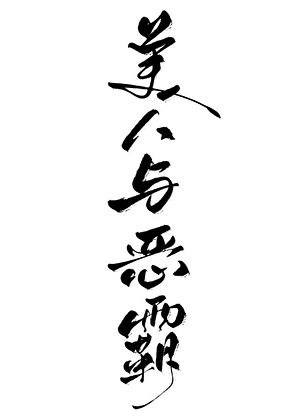 美人与恶霸